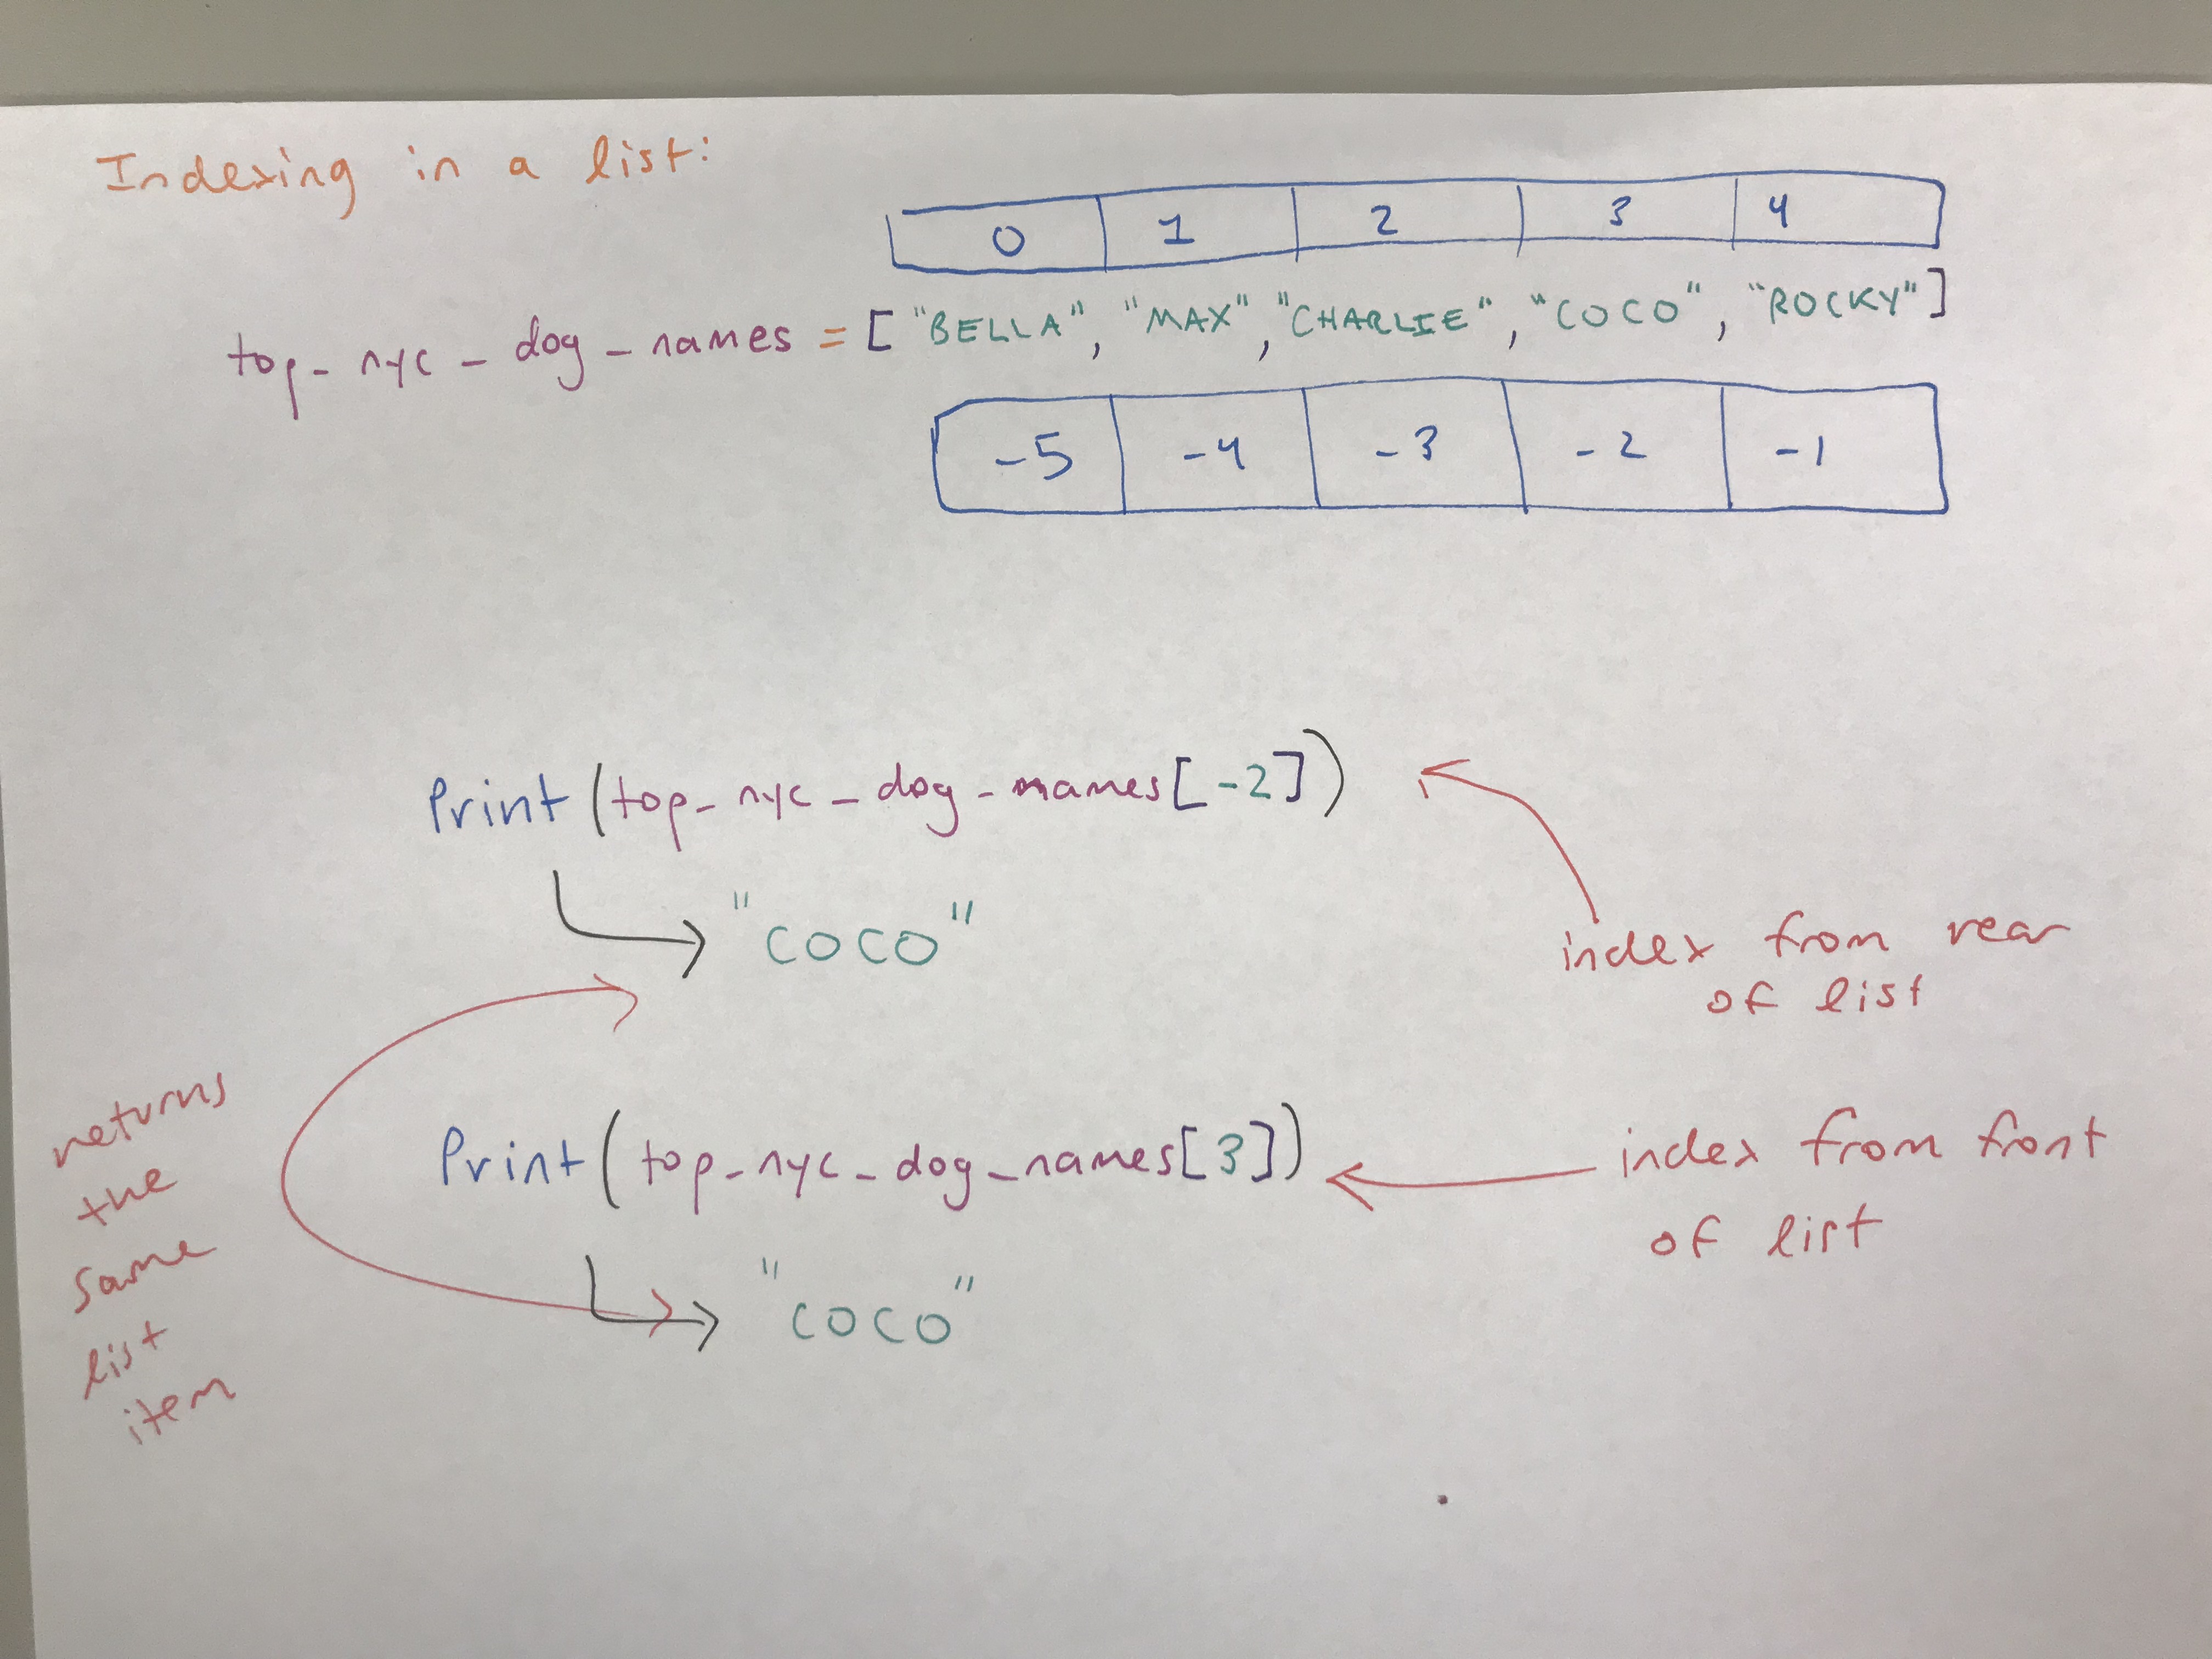 Indexing in a list:
0 1 2 3 4
top_nyc_dog_names = ["BELLA", "MAX", "CHARLIE", "COCO", "ROCKY"]
-5 -4 -3 -2 -1
Print(top_nyc_dog_names[-2])
"COCO"
index from rear
of list
Print(top_nyc_dog_names[3])
"COCO"
index from front
of list
returns
the
same
list
item